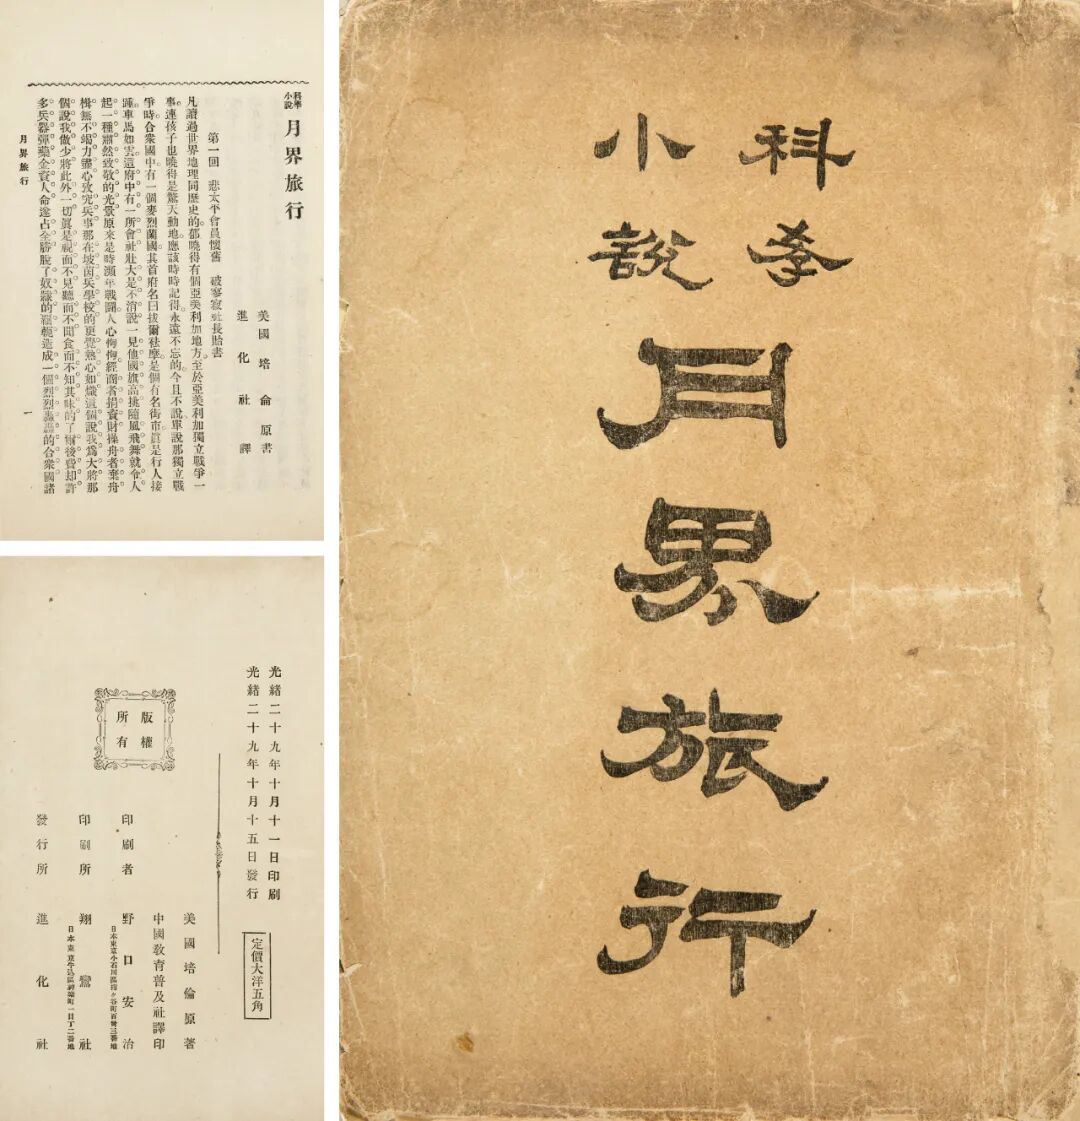 科斈
小說
月界旅行
科學
小說
月界旅行
美國培倫原書
進化社譯
第一回 悲太平會員懷舊 破寥寂社長貽書
凡讀過世界地理同歷史的都曉得有個亞美利加地方至於亞美利加獨立戰爭一
事。連孩子也曉得是驚天動地應該時時記得永遠不忘的今且不說單說那獨立戰
爭時合衆國中有一個麥烈蘭國其首府名曰拔爾祛摩是個有名街市眞是行人接
踵車馬如雲這府中有一所會社壯大是不消說一見他國旗高挑隨風飛舞就令人
起一種肅然致敬的光景原來是時瀕年戰鬪人心恟恟經商者捐資財操舟者棄舟
楫無不竭力盡心攷究兵事那在坡茵兵學校的更覺熱心如熾這個說我爲大將那
個說我做少將此外一切眞是視而不見聽而不聞食而不知其味的了爾後費却許
多兵器彈藥金資人命遂占全勝脫了奴隸的羈軛造成一個烈烈轟轟的合衆國諸
月界旅行
一
光緒二十九年十月十一日印刷
光緒二十九年十月十五日發行
定價大洋五角
美國培倫原著
中國敎育普及社譯印
印刷者 野口安治
印刷所 翔鸞社
發行所 進化社
版權
所有